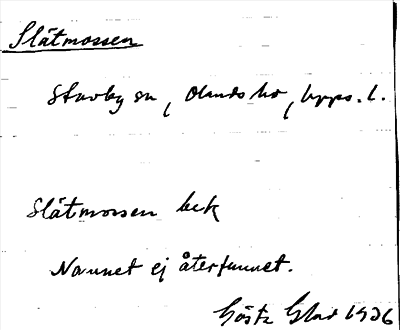 Slåtmossen
Stavby sn, Olands hd, Upps. l.
Slåtmossen bek
Namnet ej återfunnet.
Gösta Glad 1936